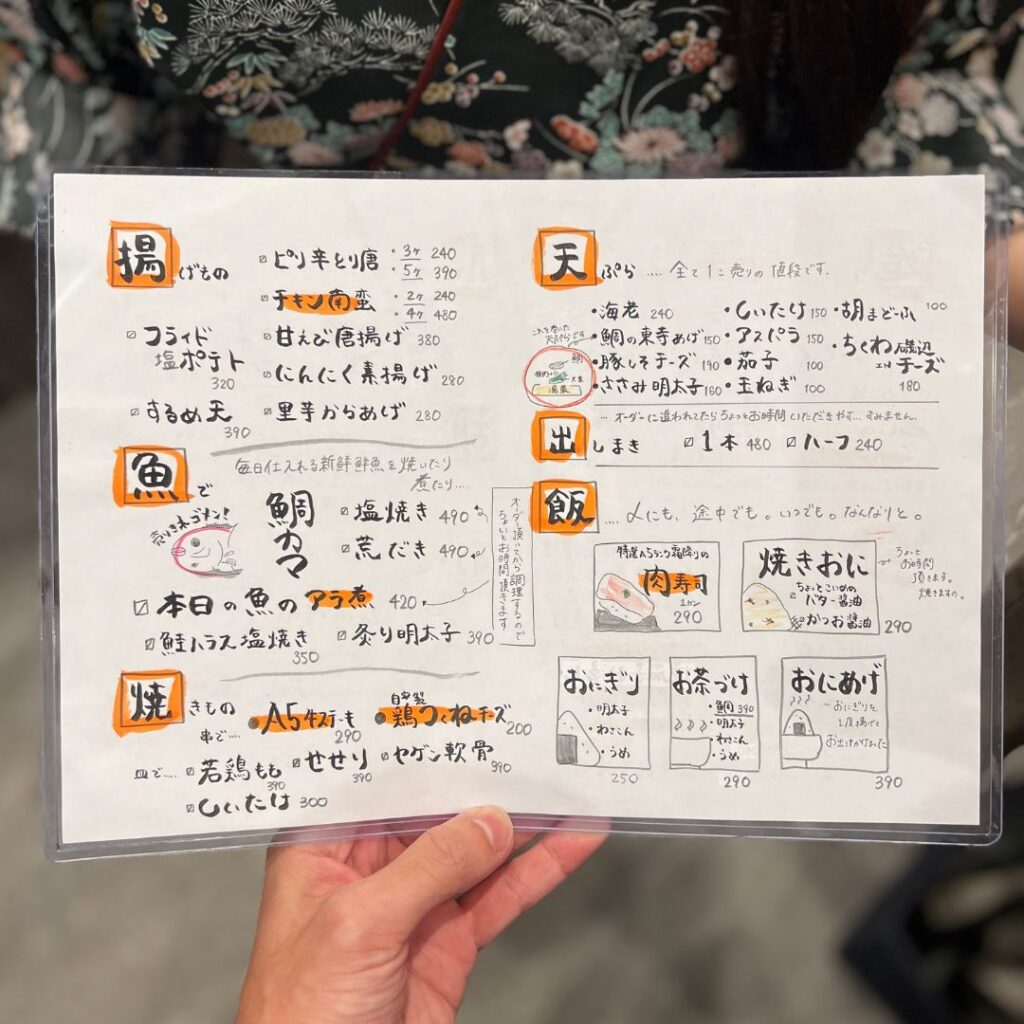 揚げもの
ピリ辛とり唐 ・3ヶ 240
・5ヶ 390
チキン南蛮 ・2ヶ 240
・4ヶ 480
フライド塩ポテト 320
甘えび唐揚げ 380
にんにく素揚げ 280
するめ天 390
里芋からあげ 280
魚で
毎日仕入れる新鮮鮮魚を焼いたり
煮たり....
売り切れゴメン!
鯛カマ
塩焼き 490
荒だき 490
オーダー頂いてから調理するので
ちょいとお時間頂きます
本日の魚のアラ煮 420
鮭ハラス塩焼き 350
炙り明太子 390
焼きもの
串で....
・A5牛ステーキ 290
自家製
・鶏つくねチーズ 200
皿で....
若鶏もも 390
せせり 390
ヤゲン軟骨 390
しいたけ 300
天ぷら .... 全て1コ売りの値段です.
・海老 240
・しいたけ 150
・胡まどーふ 100
これを巻いた
天ぷらです
鯛
大葉
湯葉
・鯛の東寺あげ 150
・アスパラ 150
・ちくわ磯辺
INチーズ 180
・豚しそチーズ 190
・茄子 100
・ささみ明太子 160
・玉ねぎ 100
出しまき
... オーダーに追われてたらちょっとお時間いただきやす... すみません.
1本 480
ハーフ 240
飯 .... 〆にも、途中でも。いつでも。なんなりと。
特選A5ランク霜降りの
肉寿司
1カン
290
焼きおに
ちょっとこいめの
バター醤油
かつお醤油
290
ちょっと
お時間
頂きます。
焼きますの。
おにぎり
・明太子
・わさこん
・うめ
250
お茶づけ
・鯛 390
・明太子
・わさこん
・うめ
290
おにあげ
...おにぎりを
お出汁かけました
390